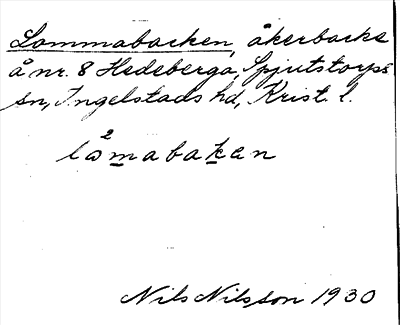 Lommabacken, åkerbacke
å nr. 8 Hedeberga, Spjutstorps
sn, Ingelstads hd, Krist. l.
2
lomabaken
Nils Nilsson 1930